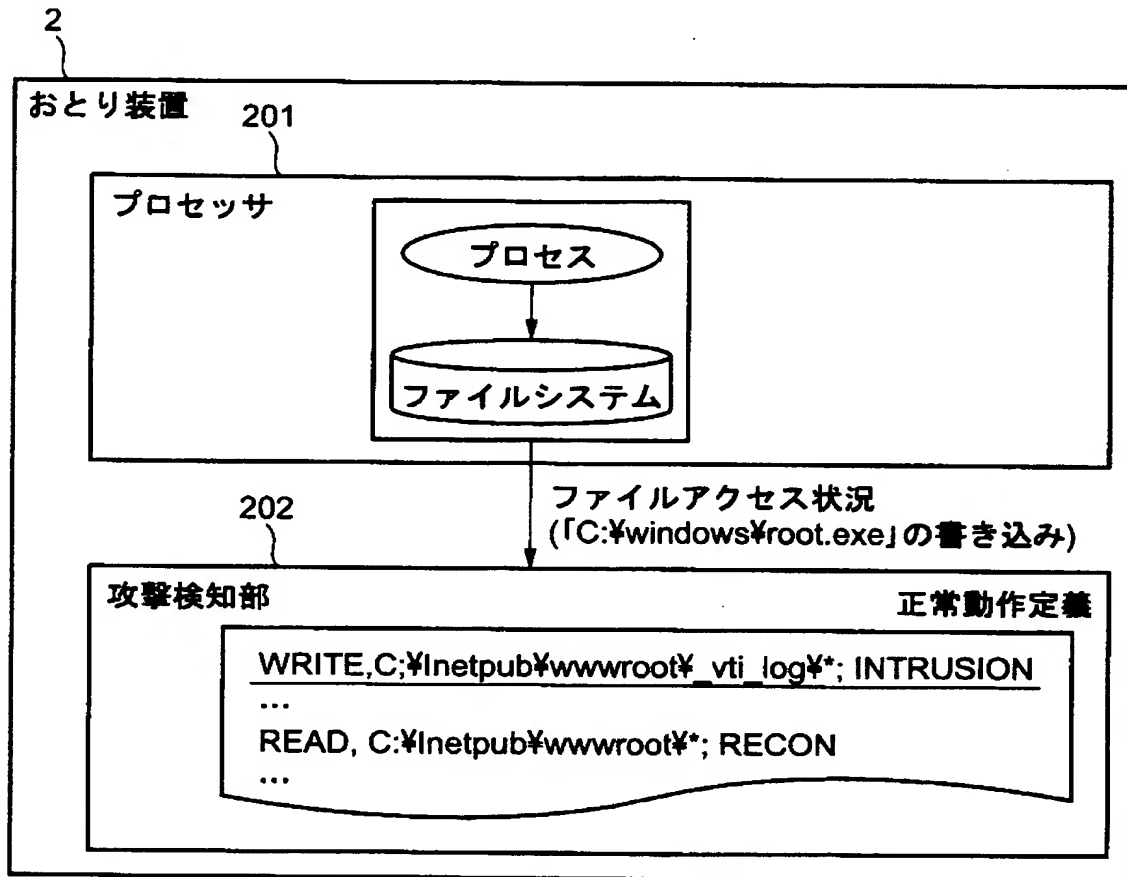 2
おとり装置
201
プロセッサ
プロセス
ファイルシステム
ファイルアクセス状況
(｢C:¥windows¥root.exe｣の書き込み)
202
攻撃検知部
正常動作定義
WRITE,C;¥Inetpub¥wwwroot¥_vti_log¥*; INTRUSION
...
READ, C:¥Inetpub¥wwwroot¥*; RECON
...